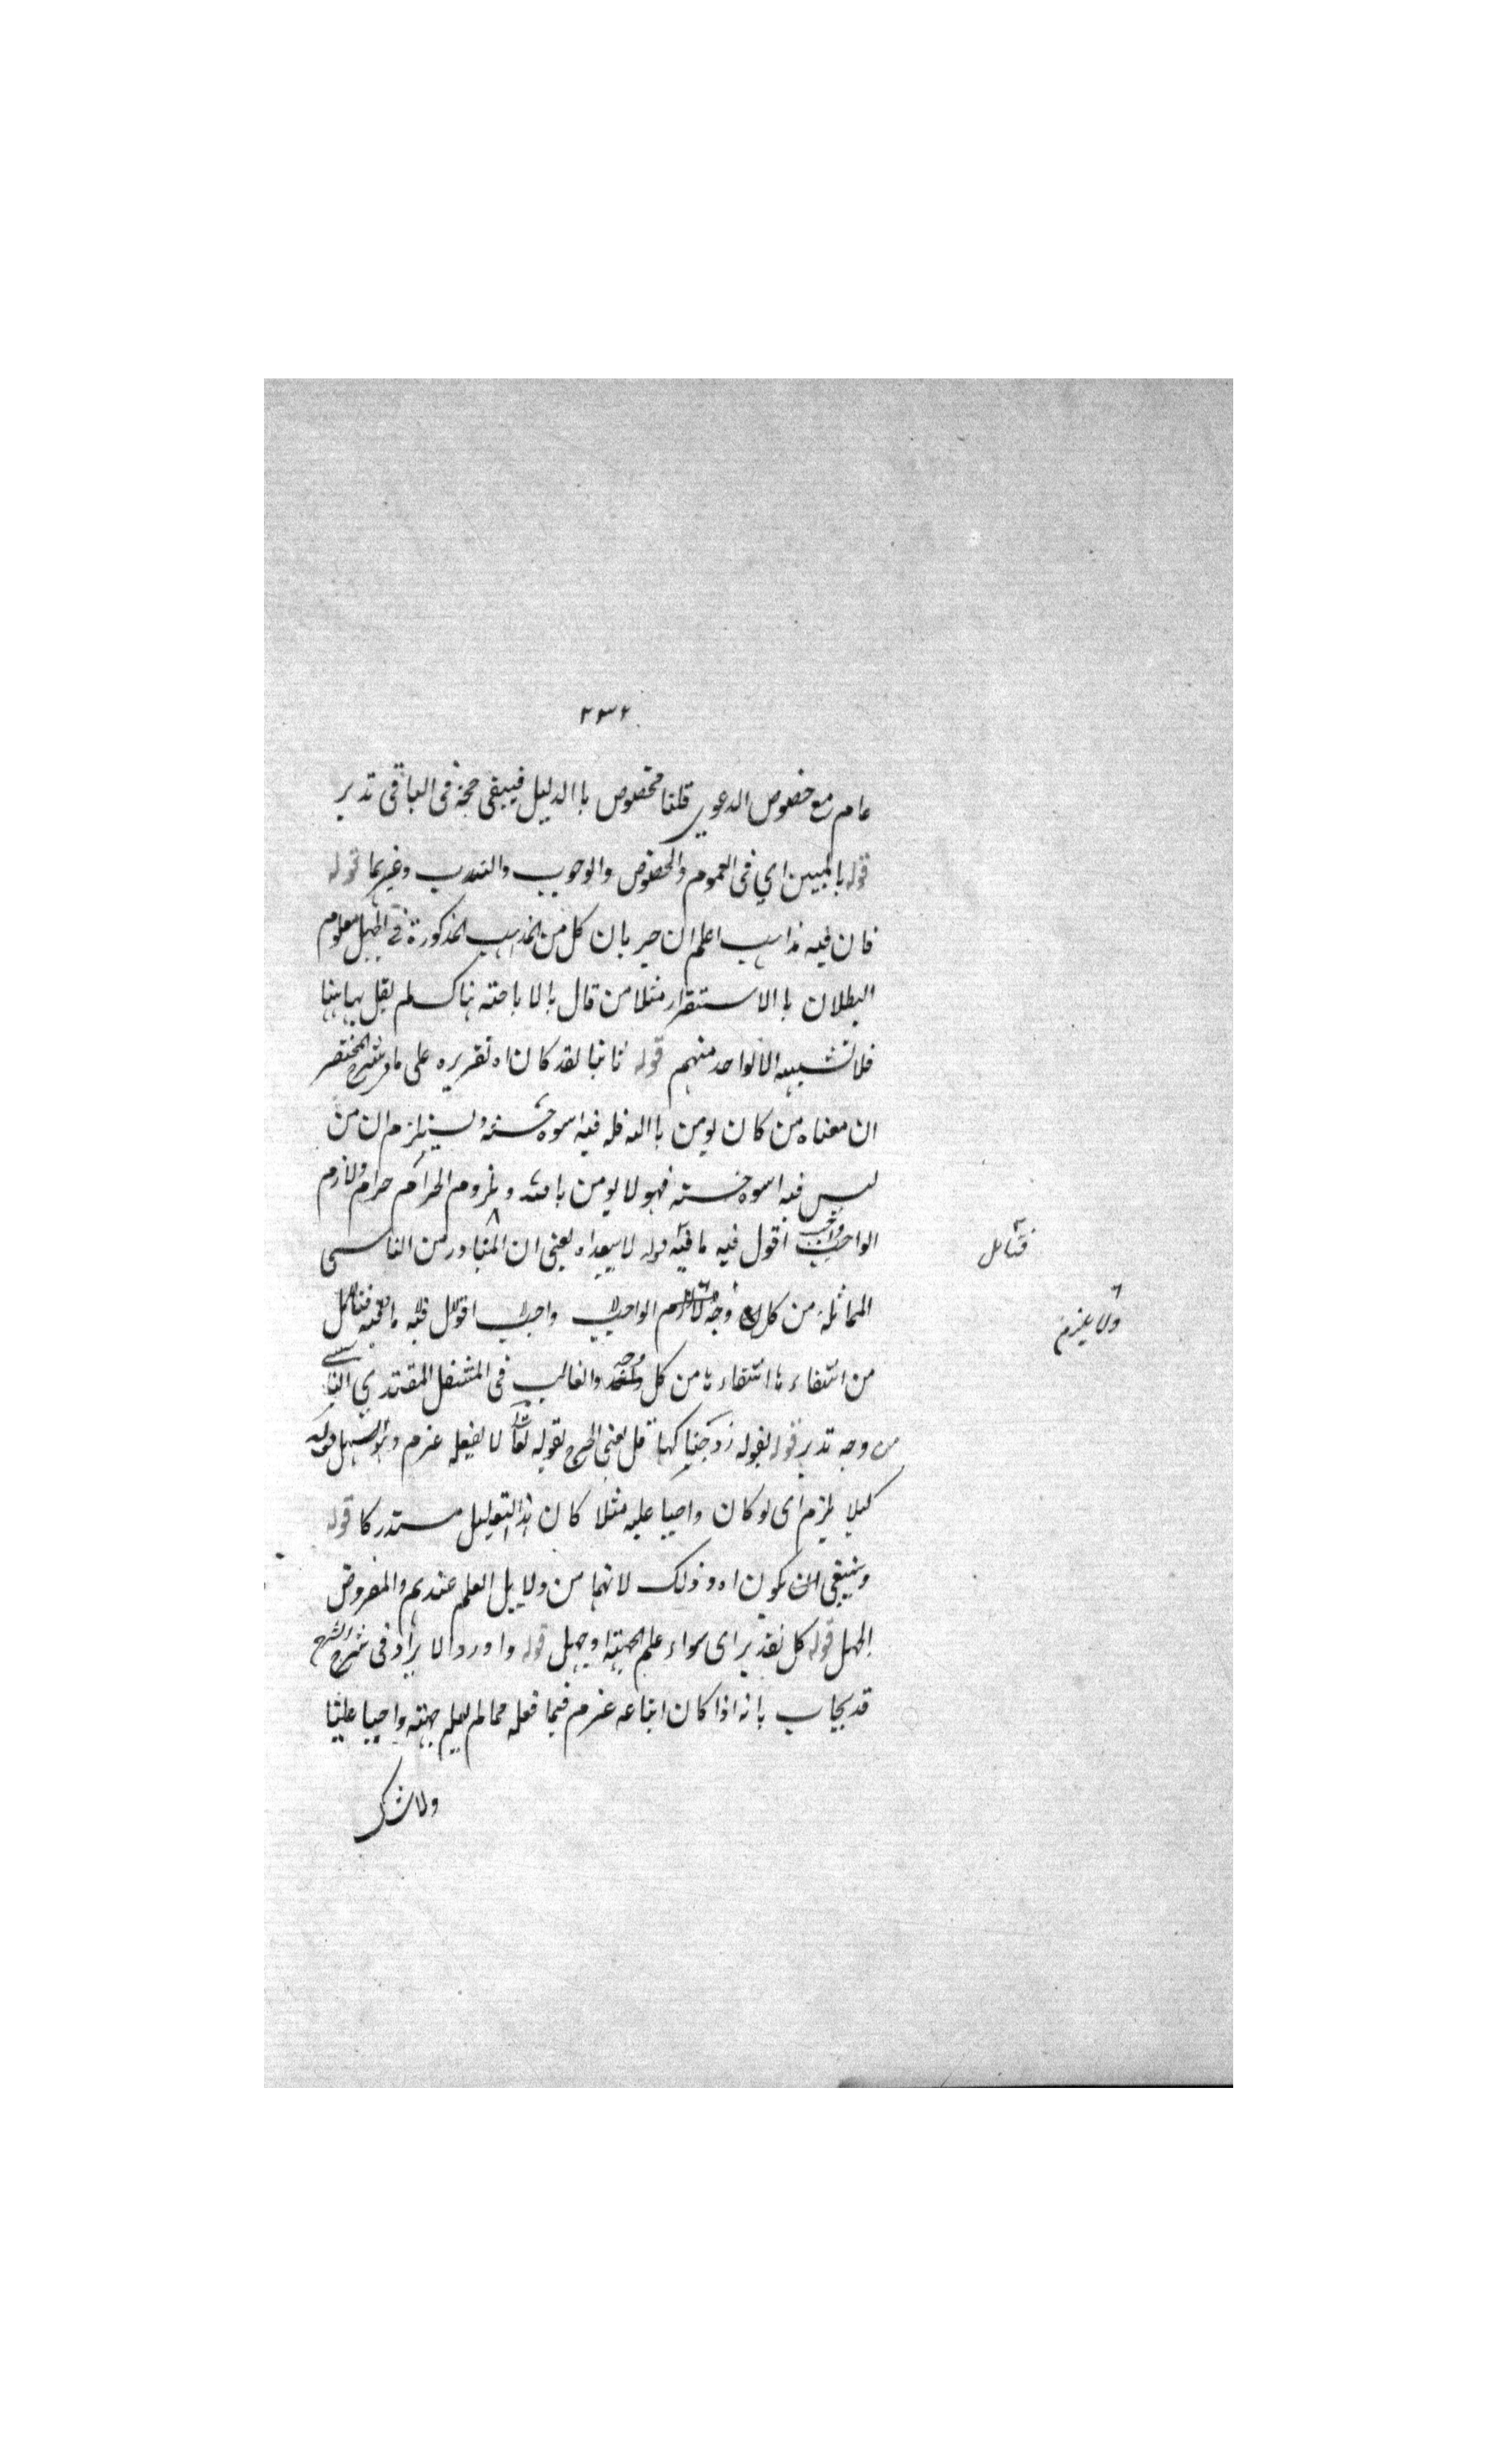 ٢٣٢
عام مع خصوص الدعوي قلنا فخصوص باالدليل فيبقى حجة فى الباقى تدبر
قوله بالمبين اي فى العموم والخصوص والوجوب والندب وغيرهما قوله
فان فيه مذاهب اعلم ان جريان كل من المذاهب المذكورة في الجهل معلوم
البطلان باالاستقرار مثلا من قال بالاباحته هناك لم يقل بها هنا
فلا تشبيه الا لواحد منهم قوله ثانيا لقد كان اه تقريره على ما فى شرح المختصر
ان معناه من كان يومن باالله فله فيه اسوة حسنة ويستلزم ان من
ليس فيه اسوة حسنة فهو لا يومن بالله وملزوم الحرام حرام ولازم
الواجب واجب اقول فيه ما فيه قوله لا يبعد اه يعنى ان المتبادر من التاسى
المماثلة من كل وجه لازم الواجب واجب اقول فيه ما فيه فتامل
من انتفاء ها انتفاءها من كل وجه والغالب فى المتنفل المقتدي التاسى
من وجه تدبر قوله بقوله زوجنكها قل يعنى الحرج بقوله تعالى لا يفعله عزم وهذا اسهل قوله
كيلا يلزم اى لو كان واجبا عليه مثلا كان هذا التعليل مستدركا قوله
وينبغى ان يكون اه وذلك لانهما من دلايل العلم عندهم والمفروض
الجهل قوله كل تقدير اى سواء علم الجهة او جهل قوله واورد الايراد فى شرح الشرح
قد يجاب بانه اذا كان اتباعه عزم فيما فعله مما لم يعلم جهته واجبا علينا
ولا شك
فتامل
ولا يلزم